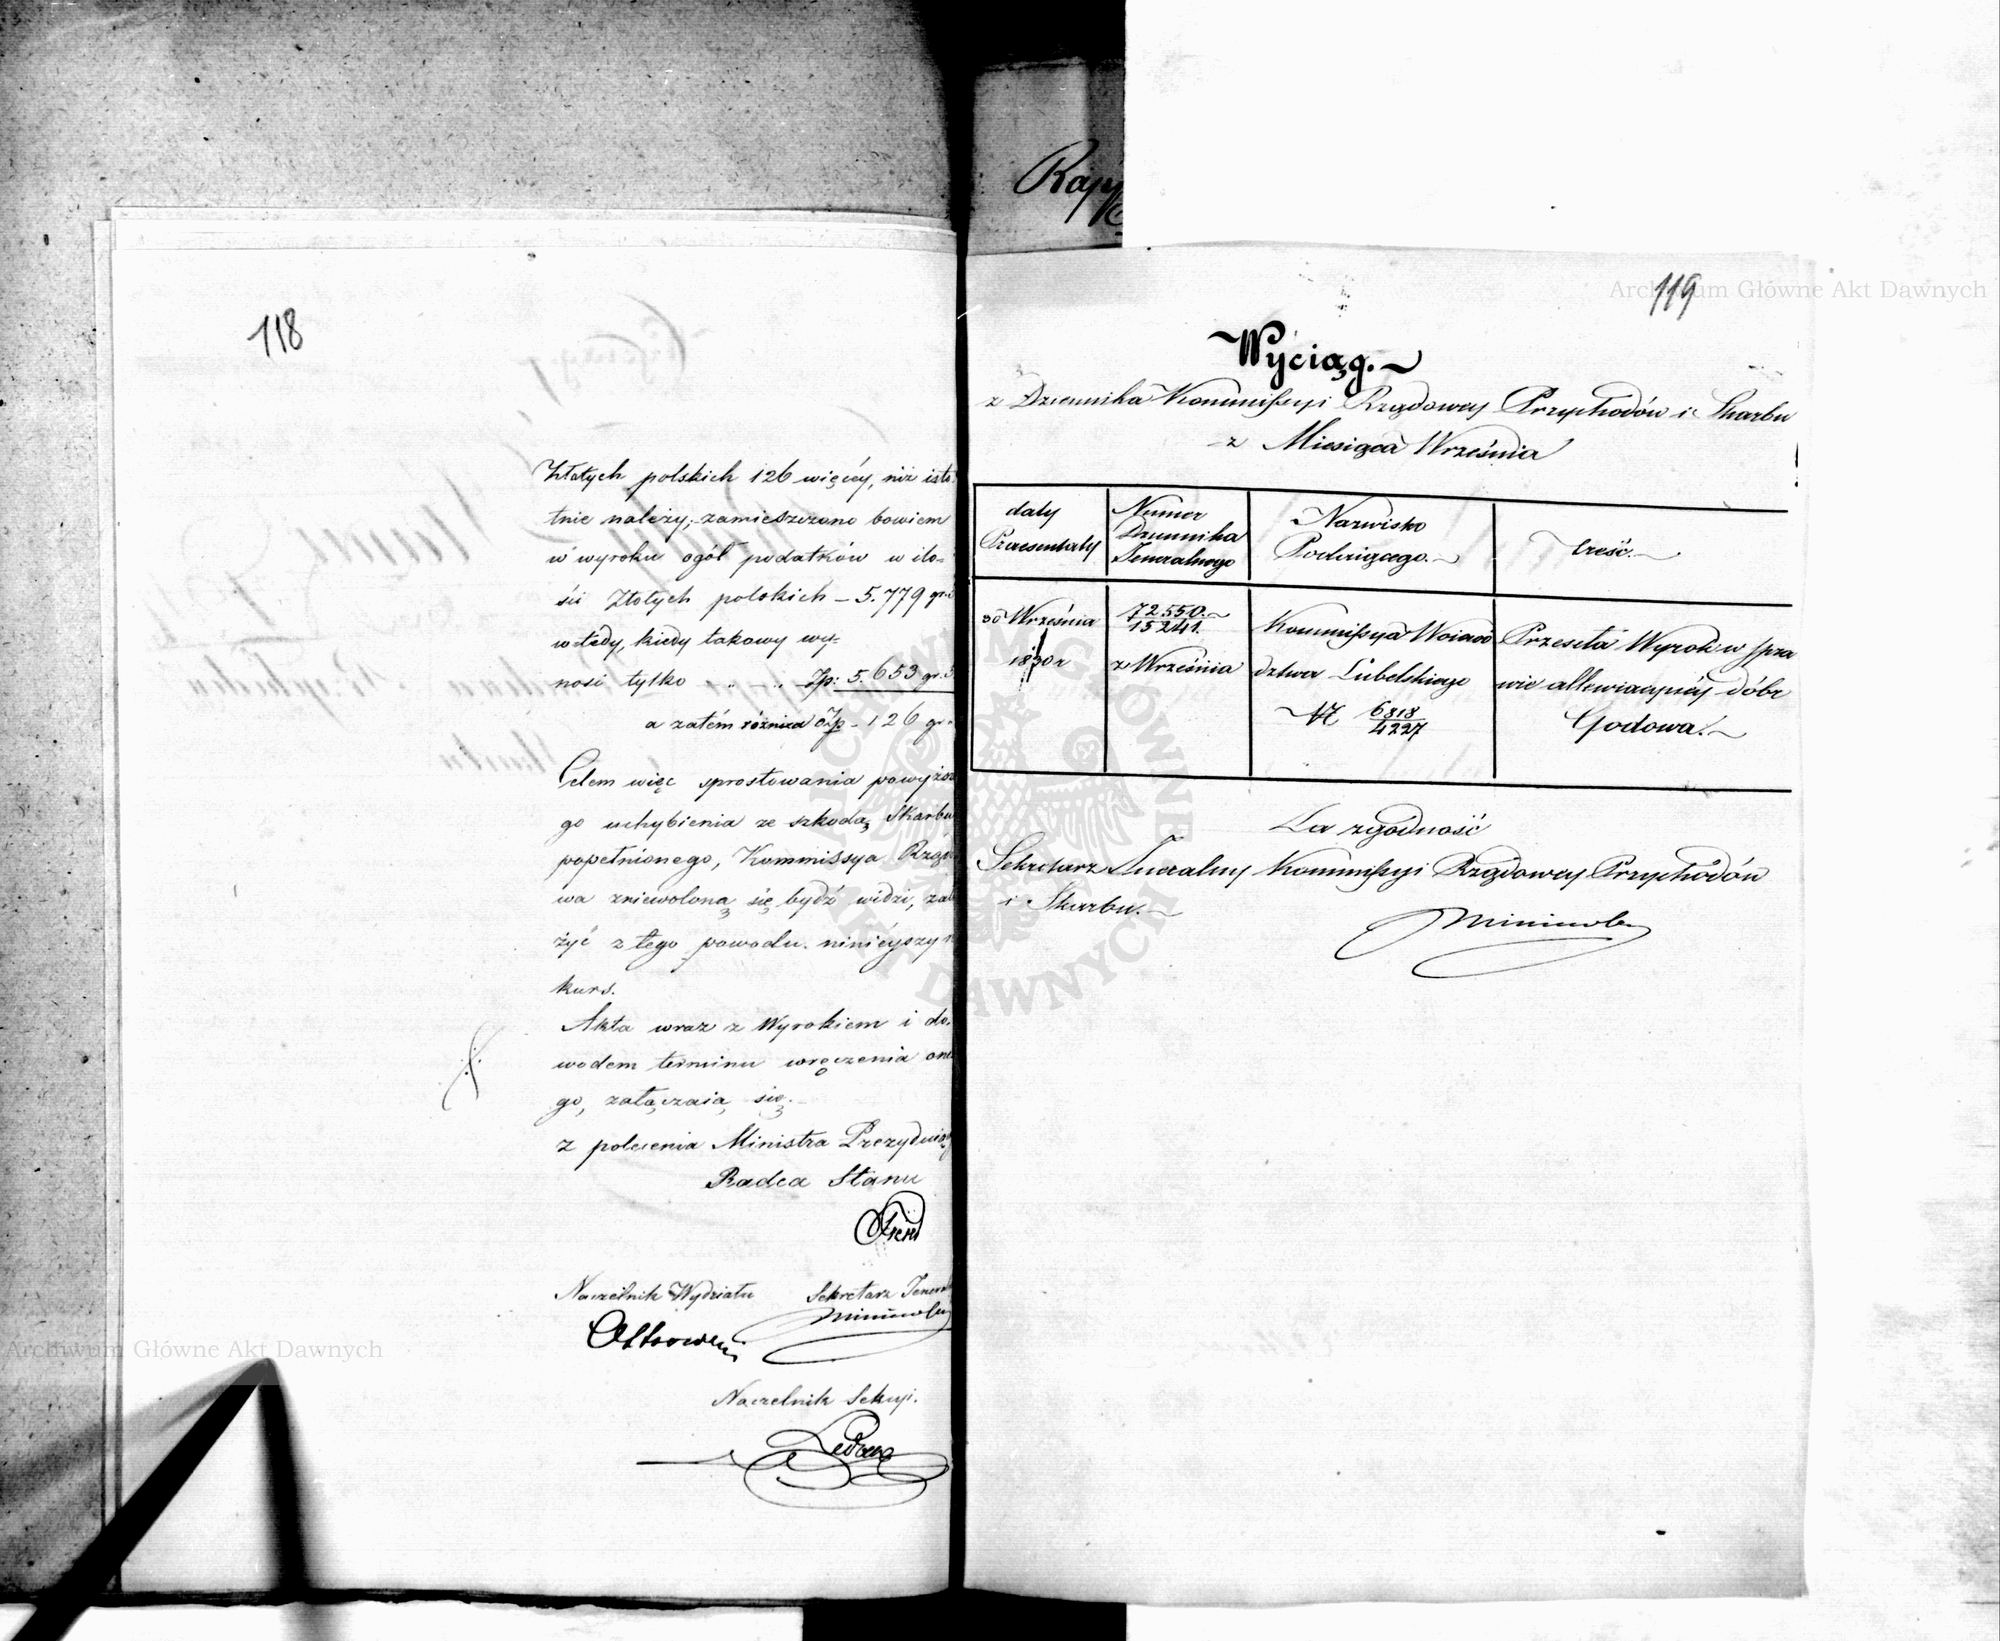 118
Złotych polskich 126 więcéy, niż isto
tnie należy, zamieszczono bowiem
w wyroku ogół podatków w ilo-
ści Złotych polskich – 5.779 gr. 5
wtedy, kiedy takowy wy-
nosi tylko – „ – „ Zp: 5.653 gr. 5
a zatém różnica Zp – 126 gr –
Celem więc sprostowania powyższe
go uchybienia ze szkodą Skarbu
popełnionego, Kommissya Rządo
wa zniewoloną się bydź widzi, zało
żyć z tego powodu niniéyszy
kurs.
Akta wraz z Wyrokiem i do-
wodem terminu wręczenia one
go, załączaią się.
z polecenia Ministra Prezyduiąc
Radca Stanu
Naczelnik Wydziału Sekretarz Jener
Naczelnik Sekcyi.
Rapp
119
Wyciąg.
z Dziennika Kommissyi Rządowey Przychodów i Skarbu
z Miesiąca Września
daty
Prezentaty
Numer
Dziennika
Jeneralnego
Nazwisko
Podaiącego.
treść.
30 Września
1830 r
72550.
15241.
z Września
Kommissya Woiewó
dztwa Lubelskiego
N 6818
4227
Przesyła Wyrok w spra
wie allewiacyiney dóbr
Godowa.
Za zgodność
Sekretarz Jeneralny Kommissyi Rządowey Przychodów
i Skarbu.
Archiwum Główne Akt Dawnych
Archiwum Główne Akt Dawnych
ARCHIWUM GŁÓWNE AKT DAWNYCH